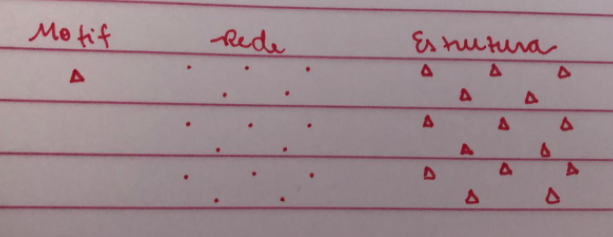 Motif Rede Estrutura